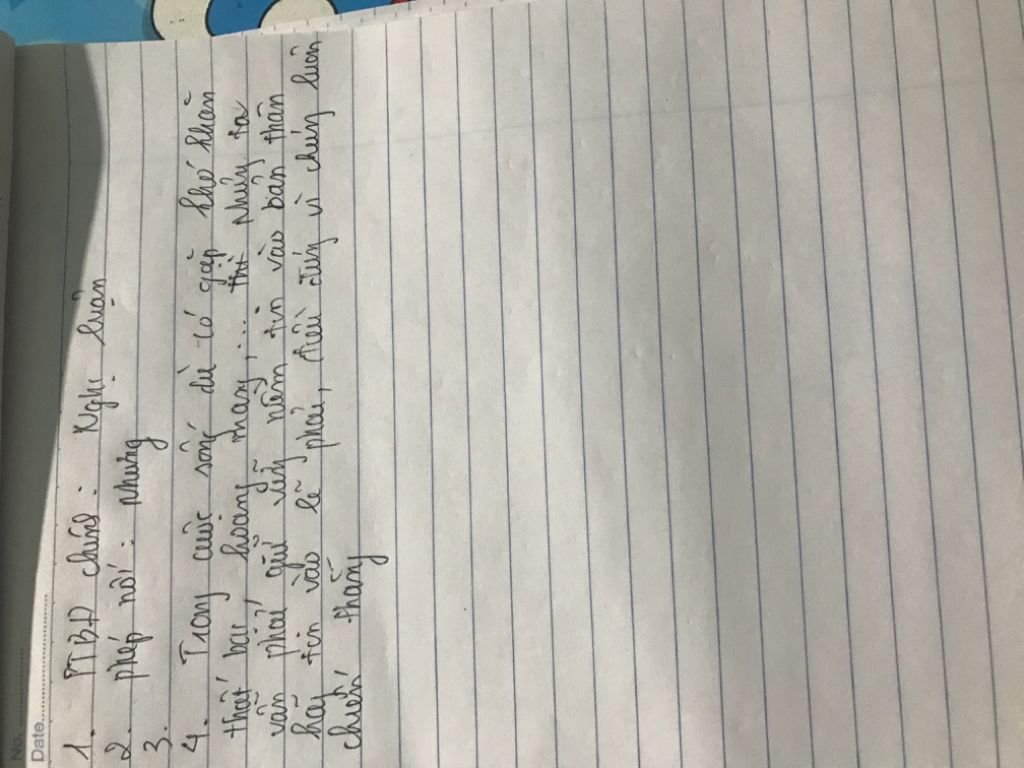 No.
Date
1. PTBĐ chính: Nghị luận
2. phép nối: nhưng
3.
4. Trong cuộc sống dù có gặp khó khăn
thất bại, hoảng mang,... thì nhưng ta
vẫn phải giữ vững niềm tin vào bản thân
hãy tin vào lẽ phải, điều đúng vì chúng luôn
chiến thắng